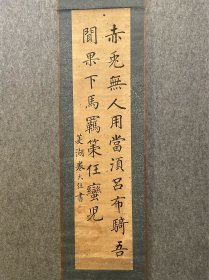 赤兎無人用當須呂布騎吾
聞果下馬羈策任蠻兒
美湖養大任書